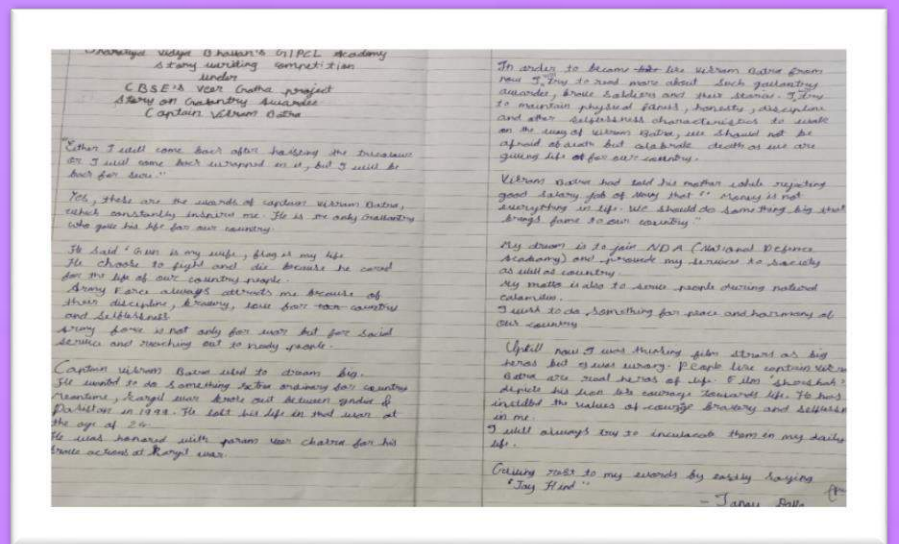 Bharatiya Vidya Bhavan's GIPCL Academy
Story writing competition
under
CBSE'S Veer Gatha project
Story on Gallantry Awardee
Captain Vikram Batra
"Either I will come back after hoisting the tricolour
or I will come back wrapped in it, but I will be
back for sure."
Yes, these are the words of captain Vikram Batra,
which constantly inspires me. He is my only Gallantry
who gave his life for our country.
He said "Gun is my wife, flag is my life
He choose to fight and die because he cared
for the life of our country people.
Army Force always attracts me because of
their discipline, bravery, love for country
and selflessness.
Army force is not only for war but for social
service and reaching out to needy people.
Captain Vikram Batra used to dream big.
He wanted to do something extra ordinary for country
meantime, Kargil war broke out between India &
Pakistan in 1999. He lost his life in that war at
the age of 24.
He was honored with param veer chakra for his
brave actions at Kargil war.
In order to become like Vikram Batra from
now I try to read more about such gallantry
awardee, brave soldiers and their stories. I try
to maintain physical fitness, honesty, discipline
and other selflessness characteristics to walk
on the way of Vikram Batra, we should not be
afraid of death but celebrate death as we are
giving life for our country.
Vikram Batra had told his mother while rejecting
good salary job of Navy that "Money is not
everything in life. We should do something big that
brings fame to our country."
My dream is to join NDA (National Defence
Academy) and provide my services to society
as well as country.
My motto is also to serve people during natural
calamities.
I wish to do something for peace and harmony of
our country
Uptill now I was thinking film stars as big
heros but I was wrong. People like captain Vikram
Batra are real heros of life. Film Shershah
depicts his lion like courage towards life. He has
instilled the values of courage bravery and
in me.
I will always try to inculcate them in my daily
life.
Giving rest to my words by saying
"Jay Hind"